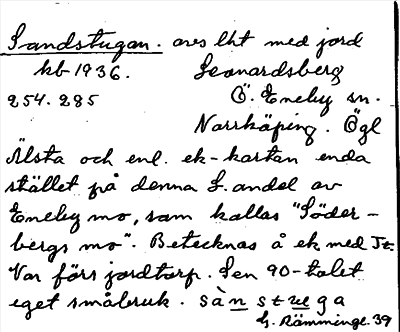 Sandstugan. avs lht med jord
kb 1936. Leonardsberg
254.285 Ö. Eneby sn.
Norrköping. Ögl
Älsta och enl. ek-kartan enda
stället på denna L. andel av
Eneby mo, som kallas "Söder-
bergs mo". Betecknas å ek med Jt.
Var förr jordtorp. Sen 90-talet
eget småbruk. sàn stuega
G. Rämminge. 39